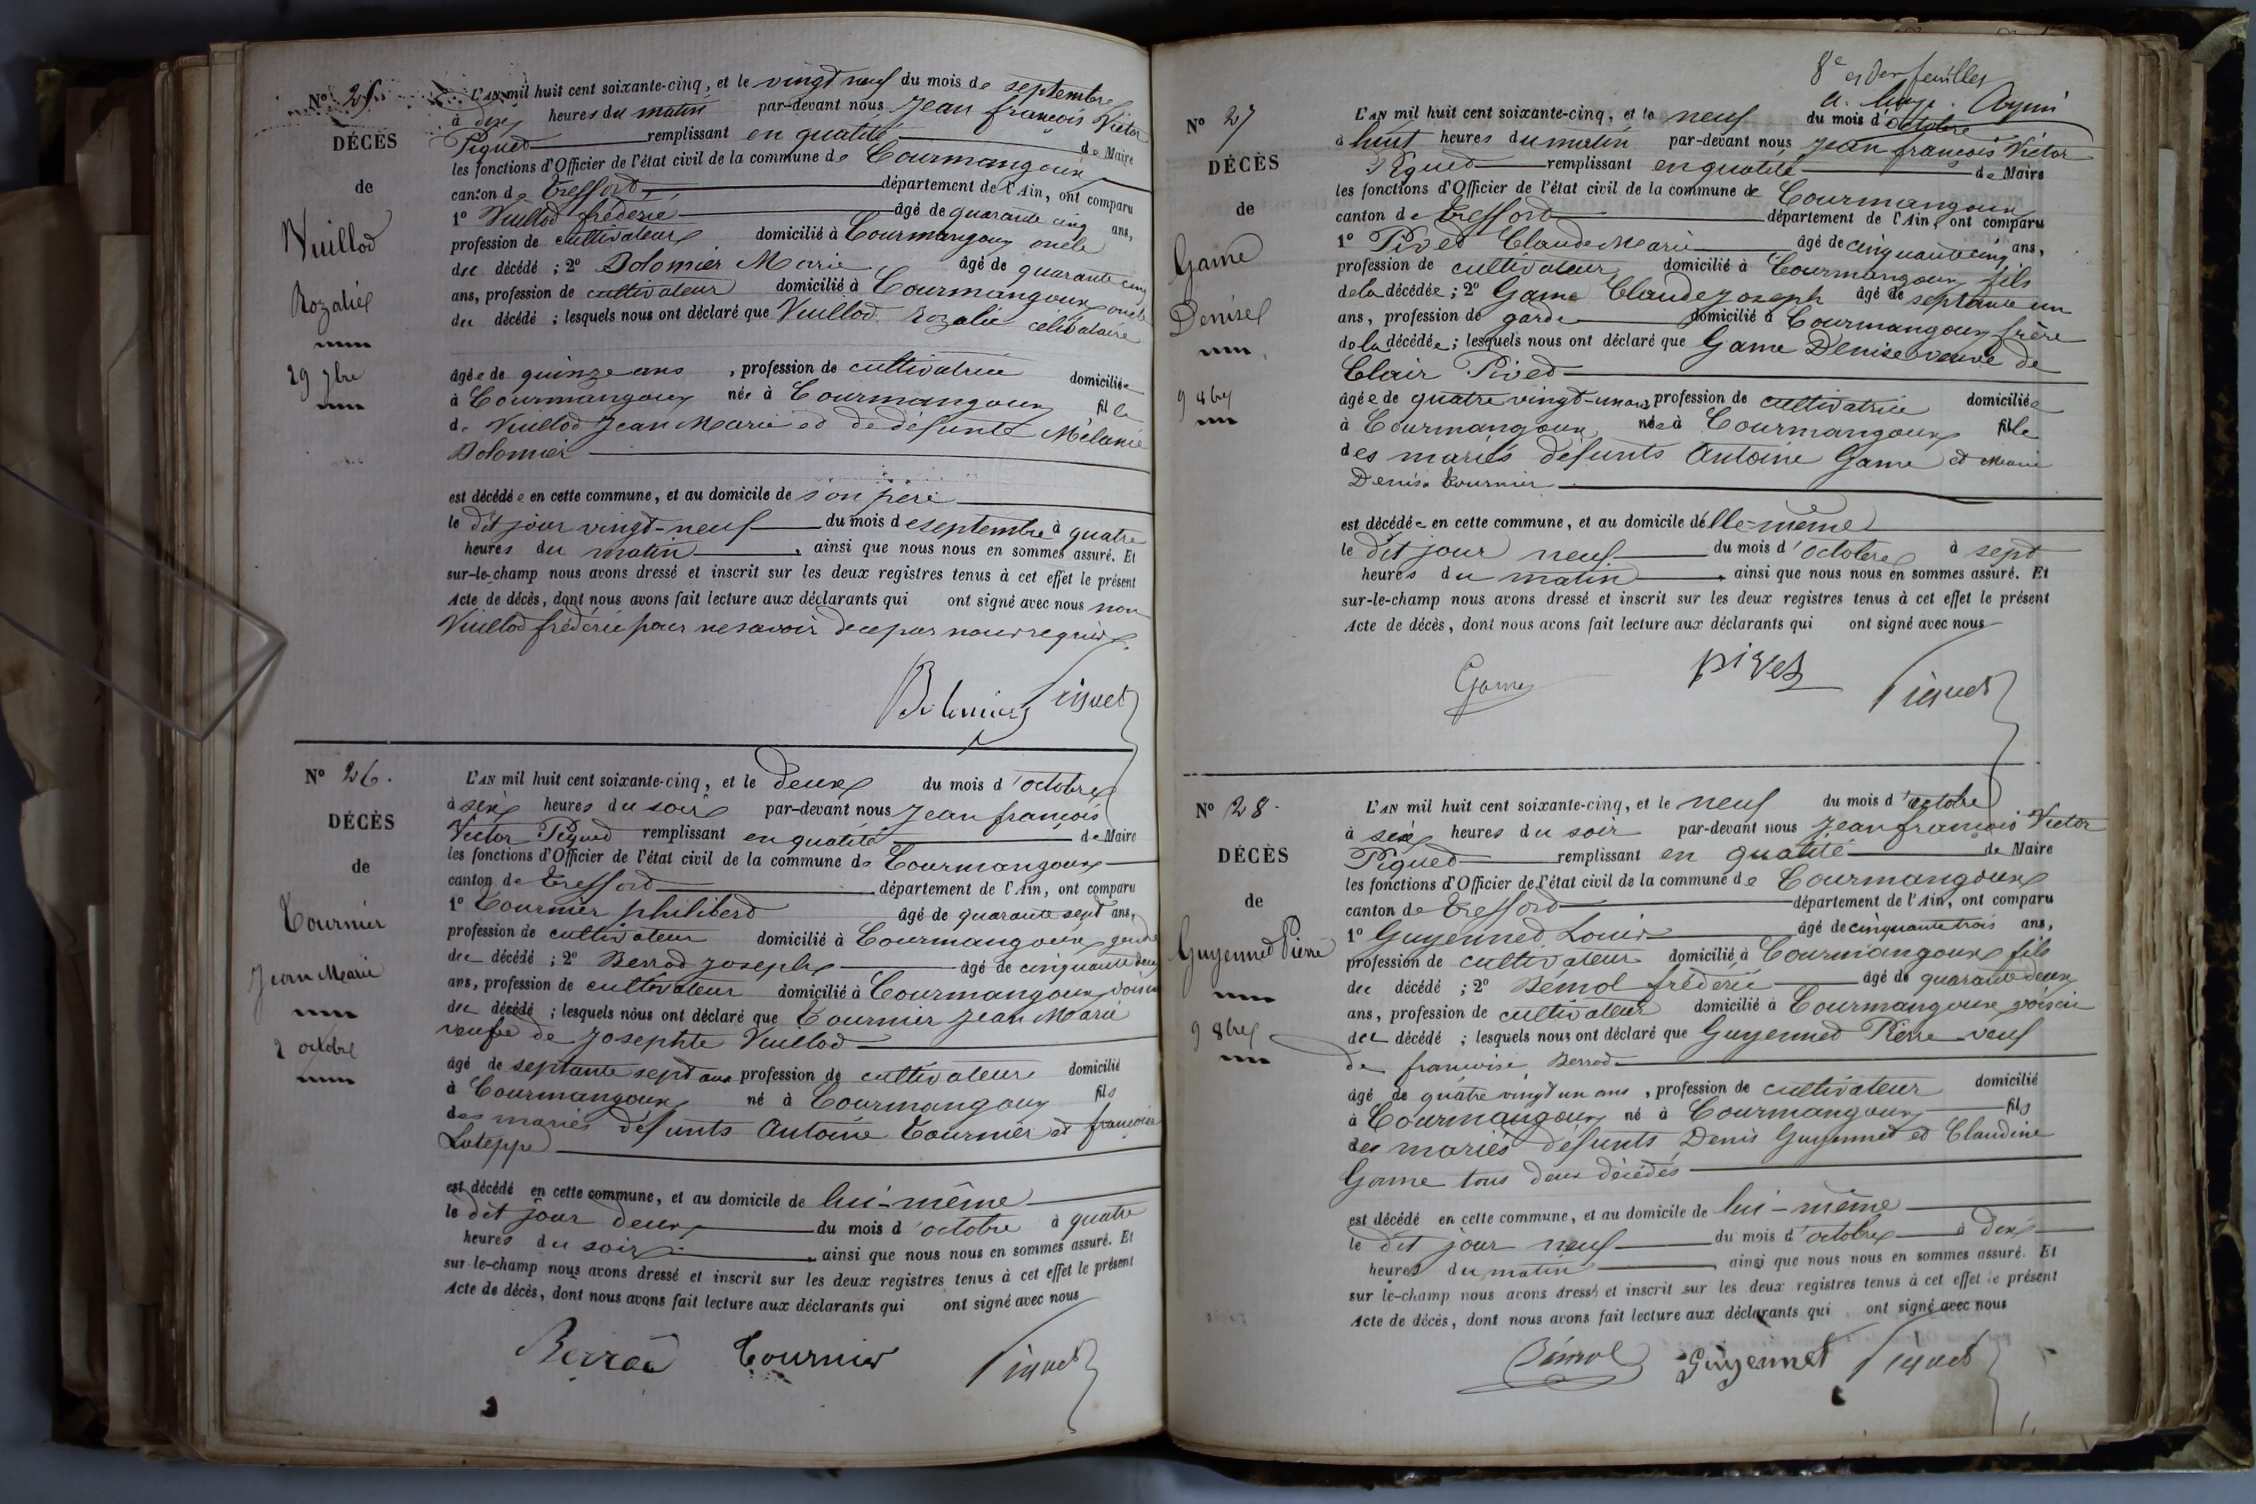 Nº 25.
DÉCÈS
de
Vuillod
Rozalie
29 7bre
L'AN mil huit cent soixante-cinq, et le vingt neuf du mois de septembre
à dix heures du matin par-devant nous Jean françois Victor
Piquet remplissant en qualité de Maire
les fonctions d'Officier de l'état civil de la commune de Courmangoux
canton de Treffort département de l'Ain, ont comparu
1º Vuillod frédéric âgé de quarante cinq ans,
profession de cultivateur domicilié à Courmangoux oncle
du décédé ; 2º Dolomier Marie âgé de quarante cinq
ans, profession de cultivateur domicilié à Courmangoux oncle
du décédé ; lesquels nous ont déclaré que Vuillod Rozalie célibataire
âgée de quinze ans , profession de cultivatrice domiciliée
à Courmangoux née à Courmangoux fille
de Vuillod Jean Marie et de défunte Mélanie
Dolomier
est décédée en cette commune, et au domicile de son père
le dit jour vingt-neuf du mois de septembre à quatre
heures du matin , ainsi que nous nous en sommes assuré. Et
sur-le-champ nous avons dressé et inscrit sur les deux registres tenus à cet effet le présent
Acte de décès, dont nous avons fait lecture aux déclarants qui ont signé avec nous non
Vuillod frédéric pour ne savoir de ce par nous requis
Dolomier Piquet
Nº 26.
DÉCÈS
de
Tournier
Jean Marie
2 octobre
L'AN mil huit cent soixante-cinq, et le deux du mois d'octobre
à six heures du soir par-devant nous Jean françois
Victor Piquet remplissant en qualité de Maire
les fonctions d'Officier de l'état civil de la commune de Courmangoux
canton de Treffort département de l'Ain, ont comparu
1º Tournier philibert âgé de quarante sept ans,
profession de cultivateur domicilié à Courmangoux gendre
du décédé ; 2º Berrod Joseph âgé de cinquante deux
ans, profession de cultivateur domicilié à Courmangoux voisin
du décédé ; lesquels nous ont déclaré que Tournier Jean Marie
veufve de Josephte Vuillod
âgé de septante sept ans profession de cultivateur domicilié
à Courmangoux né à Courmangoux fils
des mariés défunts Antoine Tournier et françoise
Luteppe
est décédé en cette commune, et au domicile de lui-même
le dit jour deux du mois d'octobre à quatre
heures du soir , ainsi que nous nous en sommes assuré. Et
sur-le-champ nous avons dressé et inscrit sur les deux registres tenus à cet effet le présent
Acte de décès, dont nous avons fait lecture aux déclarants qui ont signé avec nous
Berrod Tournier Piquet
8e et der feuillet
Nº 27
DÉCÈS
de
Game
Denise
9 8bre
L'AN mil huit cent soixante-cinq, et le neuf du mois d'octobre
à huit heures du matin par-devant nous Jean françois Victor
Piquet remplissant en qualité de Maire
les fonctions d'Officier de l'état civil de la commune de Courmangoux
canton de Treffort département de l'Ain, ont comparu
1º Pivet Claude Marie âgé de cinquante cinq ans,
profession de cultivateur domicilié à Courmangoux fils
de la décédée ; 2º Game Claude Joseph âgé de septante un
ans, profession de garde domicilié à Courmangoux frère
de la décédée ; lesquels nous ont déclaré que Game Denise veuve de
Clair Pivet
âgée de quatre vingt-un ans profession de cultivatrice domiciliée
à Courmangoux née à Courmangoux fille
des mariés défunts Antoine Game et Marie
Denise Tournier
est décédée en cette commune, et au domicile d'elle-même
le dit jour neuf du mois d'octobre à sept
heures du matin , ainsi que nous nous en sommes assuré. Et
sur-le-champ nous avons dressé et inscrit sur les deux registres tenus à cet effet le présent
Acte de décès, dont nous avons fait lecture aux déclarants qui ont signé avec nous
Game Pivet Piquet
Nº 28.
DÉCÈS
de
Guyennet Pierre
9 8bre
L'AN mil huit cent soixante-cinq, et le neuf du mois d'octobre
à six heures du soir par-devant nous Jean françois Victor
Piquet remplissant en qualité de Maire
les fonctions d'Officier de l'état civil de la commune de Courmangoux
canton de Treffort département de l'Ain, ont comparu
1º Guyennet Louis âgé de cinquante trois ans,
profession de cultivateur domicilié à Courmangoux fils
du décédé ; 2º Bémol frédéric âgé de quarante deux
ans, profession de cultivateur domicilié à Courmangoux voisin
du décédé ; lesquels nous ont déclaré que Guyennet Pierre veuf
de francoise Berrod
âgé de quatre vingt un ans , profession de cultivateur domicilié
à Courmangoux né à Courmangoux fils
des mariés défunts Denis Guyennet et Claudine
Game tous deux décédés
est décédé en cette commune, et au domicile de lui-même
le dit jour neuf du mois d'octobre à dix
heures du matin , ainsi que nous nous en sommes assuré. Et
sur le-champ nous avons dressé et inscrit sur les deux registres tenus à cet effet le présent
Acte de décès, dont nous avons fait lecture aux déclarants qui ont signé avec nous
Bémol Guyennet Piquet